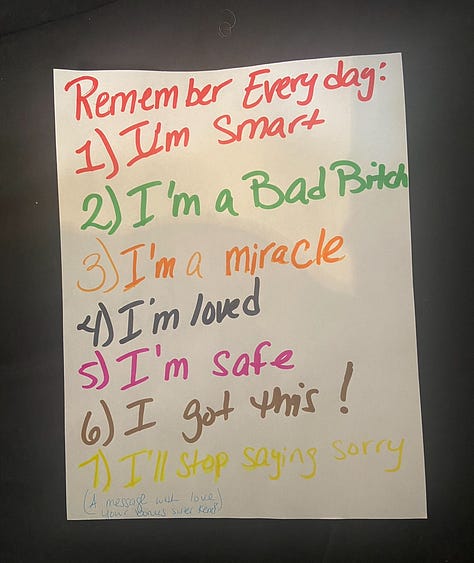 Remember Everyday:
1) I'm Smart
2) I'm a Bad Bitch
3) I'm a miracle
4) I'm loved
5) I'm safe
6) I got this!
7) I'll stop saying sorry
(A message with love
your bonus sister